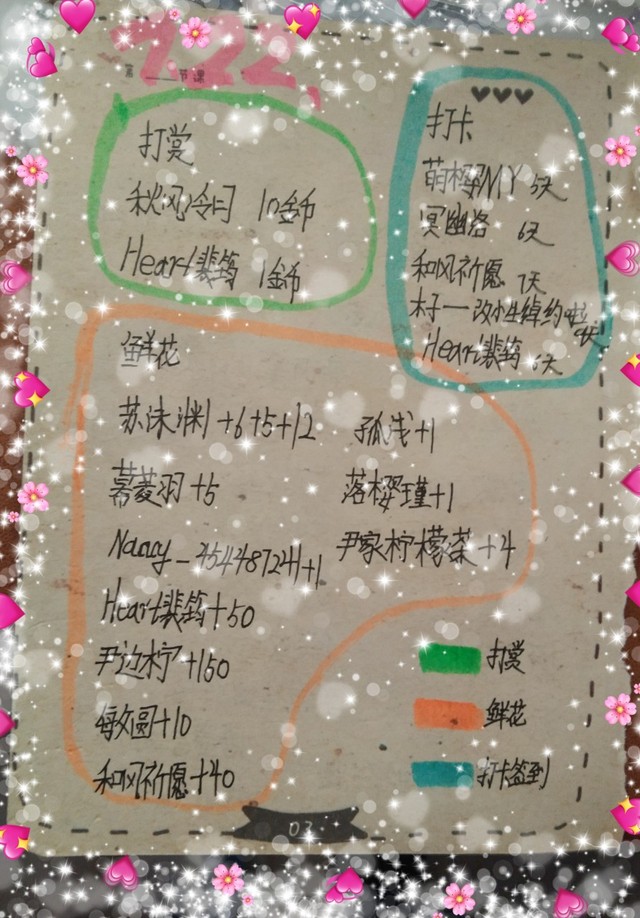 7.22.
第 节课
打赏
秋风冷曰 10金币
Heart裴筠 1金币
打卡
萌樱MY 5天
冥幽洛 6天
和风祈愿 7天
木子一改小生绰约
Heart裴筠 6天
鲜花
苏沫渊+6+5+12
慕菱羽+5
Nancy_454487241+1
Heart裴筠+50
尹边柠+150
每文圆+10
和风祈愿+40
孤浅+1
落樱瑾+1
尹家柠檬茶+4
打赏
鲜花
打卡签到
03